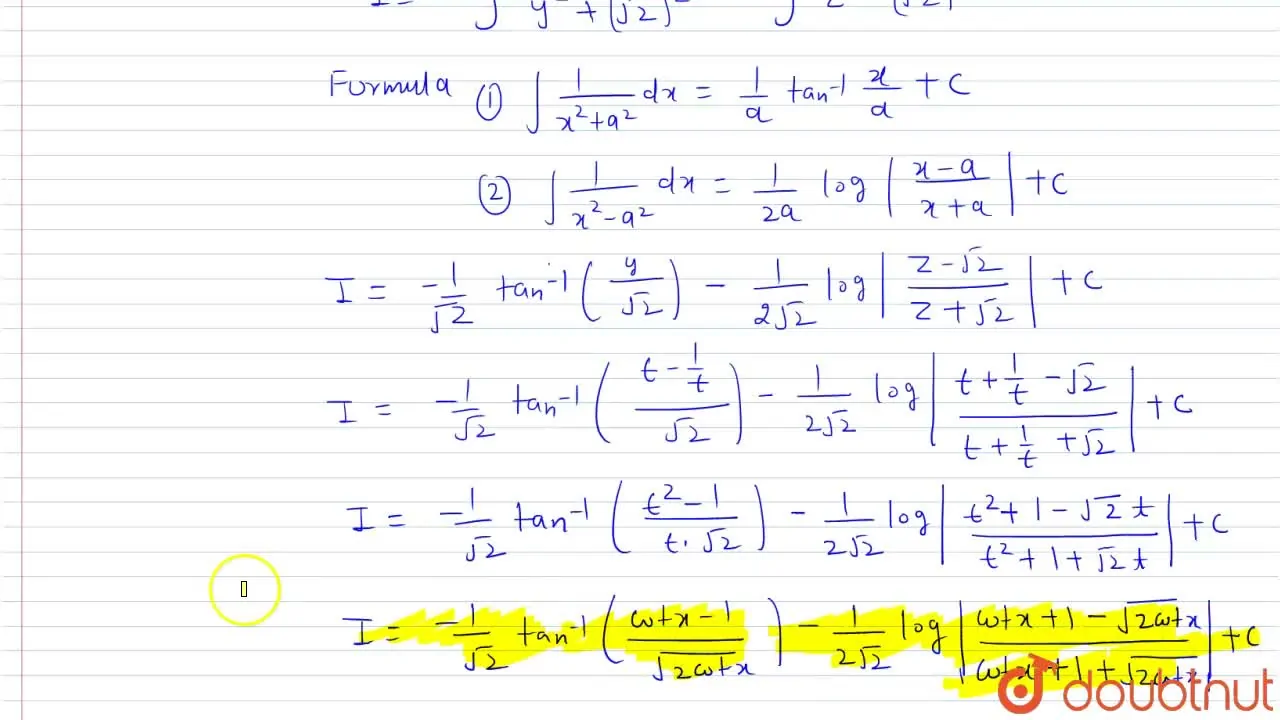 I = ∫ y² + (√2)² ∫ z² (√2)
Formula ① ∫ 1/(x²+a²) dx = 1/a tan⁻¹ x/a + C
② ∫ 1/(x²-a²) dx = 1/2a log |(x-a)/(x+a)| + C
I = -1/√2 tan⁻¹ (y/√2) - 1/2√2 log |(z-√2)/(z+√2)| + C
I = -1/√2 tan⁻¹ ((t - 1/t)/√2) - 1/2√2 log |(t + 1/t - √2)/(t + 1/t + √2)| + C
I = -1/√2 tan⁻¹ ((t² - 1)/(t·√2)) - 1/2√2 log |(t² + 1 - √2 t)/(t² + 1 + √2 t)| + C
I = -1/√2 tan⁻¹ ((cotx - 1)/√(2cotx)) - 1/2√2 log |(cotx + 1 - √(2cotx))/(cotx + 1 + √(2cotx))| + C
doubtnut